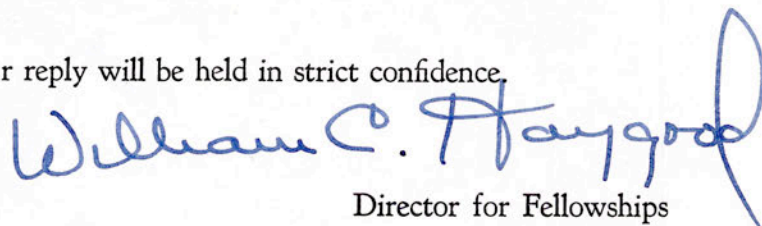 r reply will be held in strict confidence.
William C. Haygood
Director for Fellowships